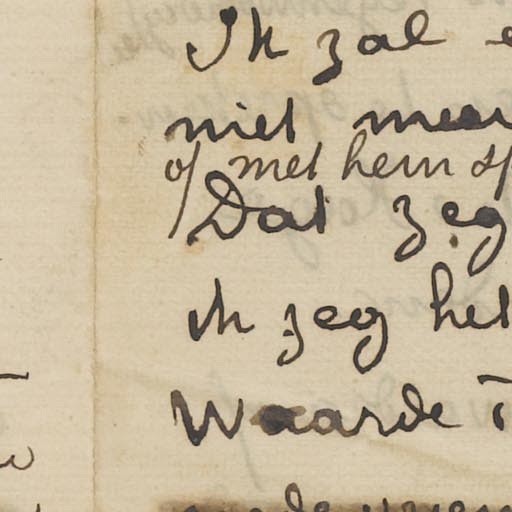 Ik zal
niet meer
of met hem
Dat zeg
ik zeg het
Waarde